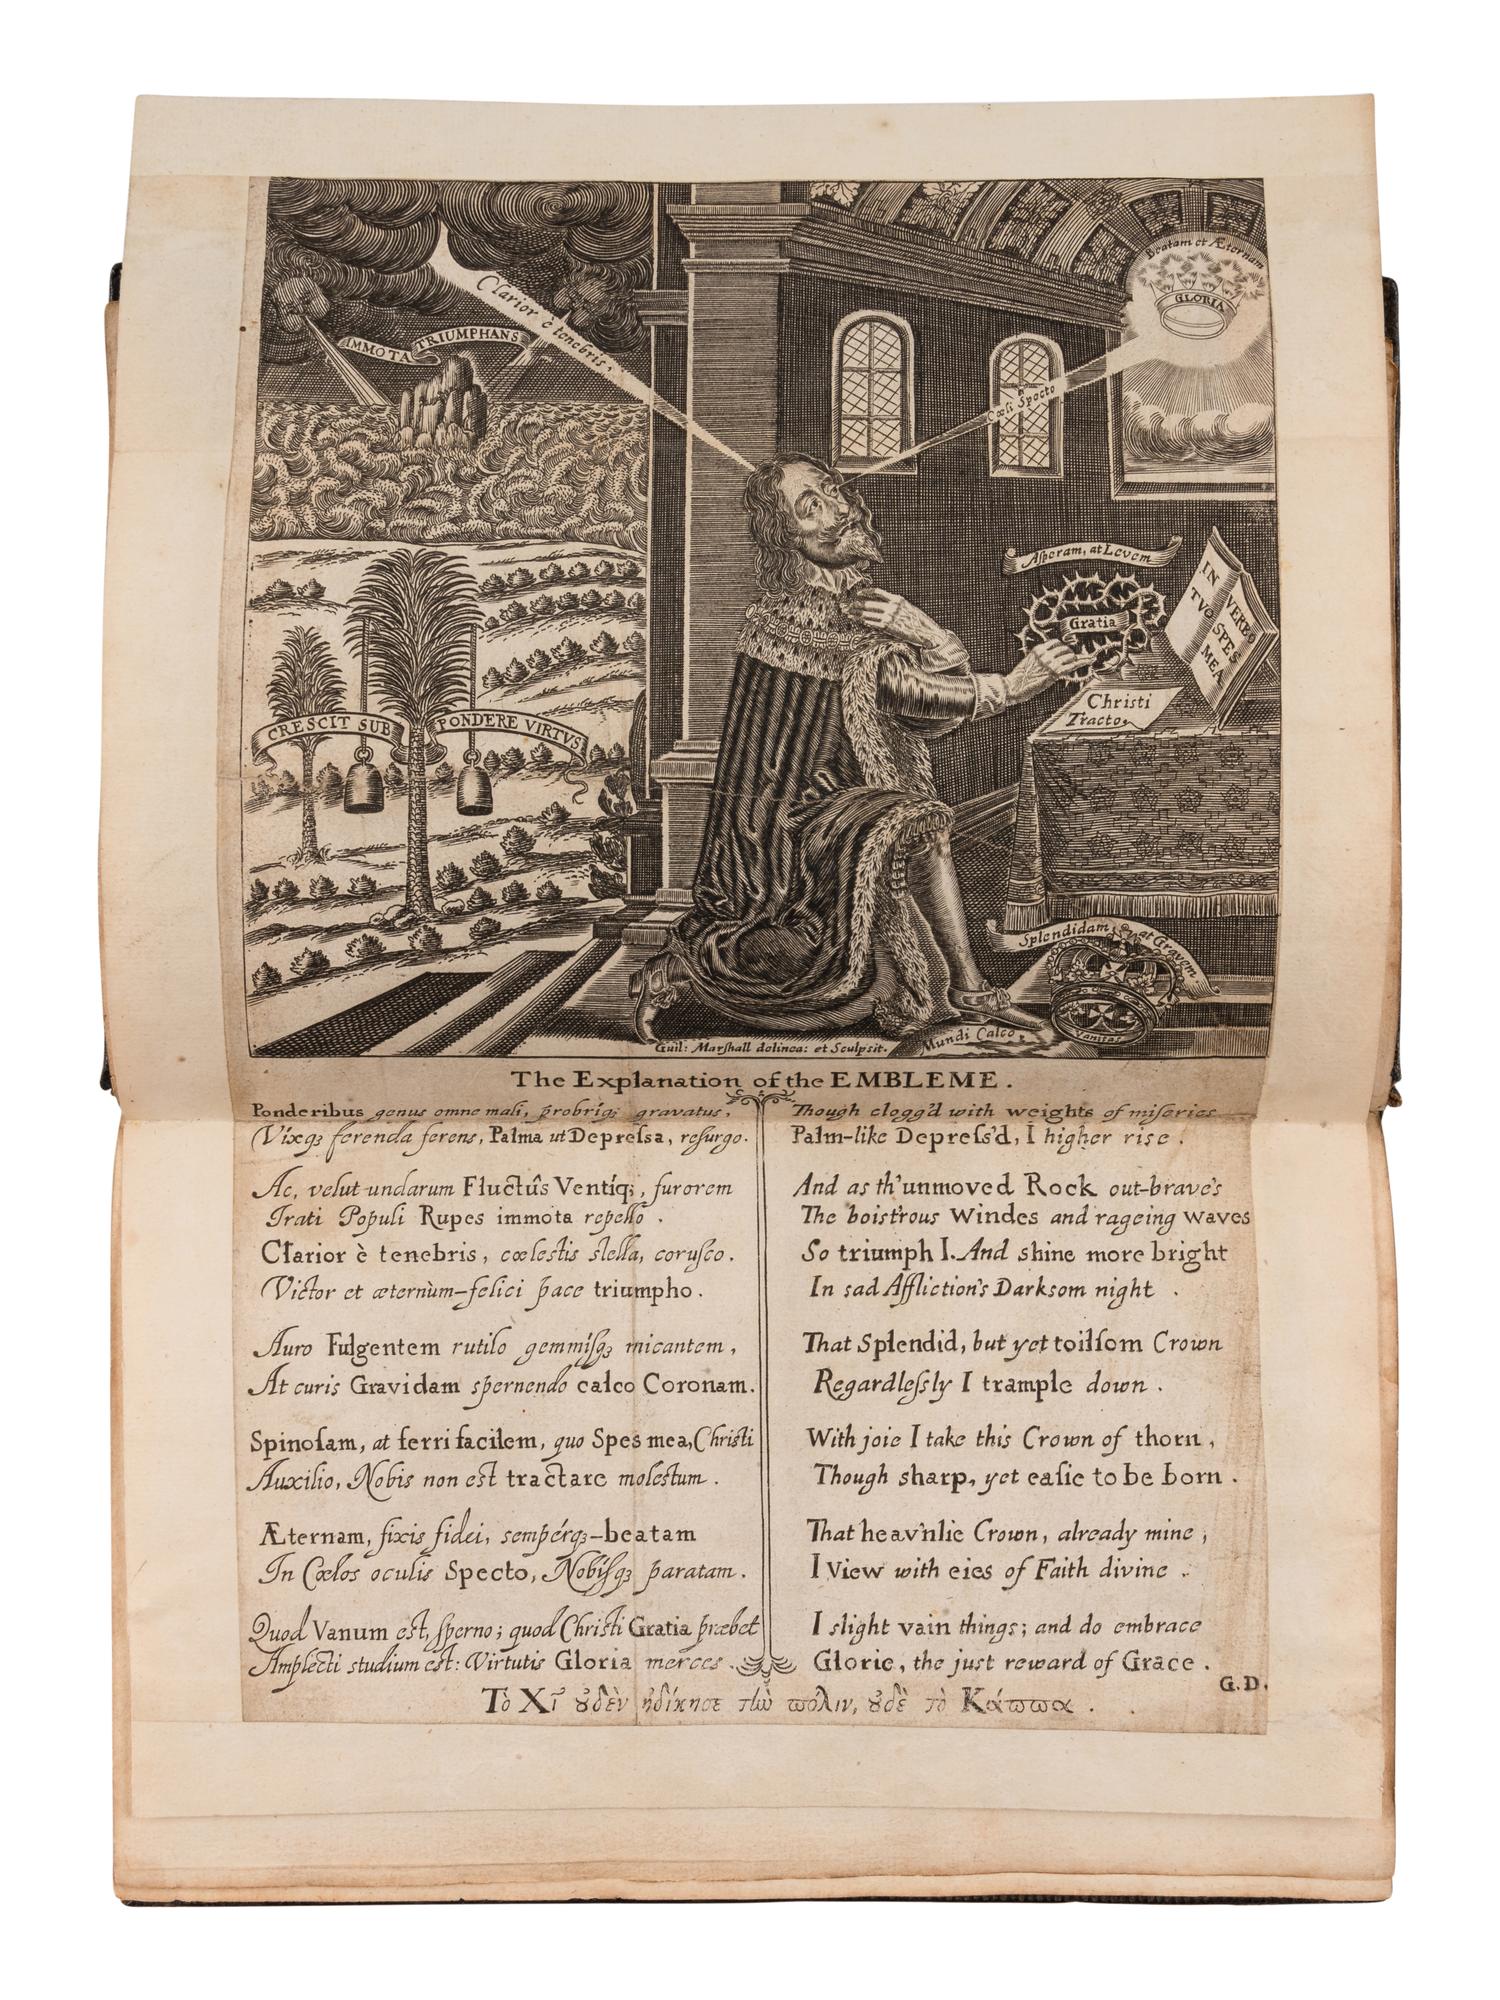 Beatam et Æternam
GLORIA
Clarior è tenebris.
IMMOTA TRIUMPHANS
Cœli Specto
Asperam, at Levem
Gratia
IN VERBO
TVO SPES
MEA
Christi
Tracto.
CRESCIT SUB PONDERE VIRTVS
Splendidam at Gravem
Vanitas
Mundi Calco.
Guil: Marshall delinea: et Sculpsit.
The Explanation of the EMBLEME.
Ponderibus genus omne mali, probriq; gravatus,
Vixq; ferenda ferens, Palma ut Depreſsa, reſurgo.
Ac, velut undarum Fluctûs Ventíq;, furorem
Irati Populi Rupes immota repello.
Clarior è tenebris, cœlestis stella, coruſco.
Victor et æternùm-felici pace triumpho.
Auro Fulgentem rutilo gemmiſq; micantem,
At curis Gravidam spernendo calco Coronam.
Spinoſam, at ferri facilem, quo Spes mea, Christi
Auxilio, Nobis non est tractare molestum.
Æternam, fixis fidei, sempérq;-beatam
In Cœlos oculis Specto, Nobiſq; paratam.
Quod Vanum est, ſperno; quod Christi Gratia præbet
Amplecti studium est: Virtutis Gloria merces.
Though clogg'd with weights of miseries
Palm-like Depreſs'd, I higher rise.
And as th'unmoved Rock out-brave's
The boistrous Windes and rageing waves
So triumph I. And shine more bright
In sad Affliction's Darksom night.
That Splendid, but yet toilſom Crown
Regardleſsly I trample down.
With joie I take this Crown of thorn,
Though sharp, yet eaſie to be born.
That heav'nlie Crown, already mine,
I View with eies of Faith divine.
I slight vain things; and do embrace
Glorie, the just reward of Grace.
G.D.
Τὸ Χῖ ȣ̓δὲν ἠδίκησε τἰω ϖόλιν, ȣ̓δὲ τὸ Κάϖϖα.